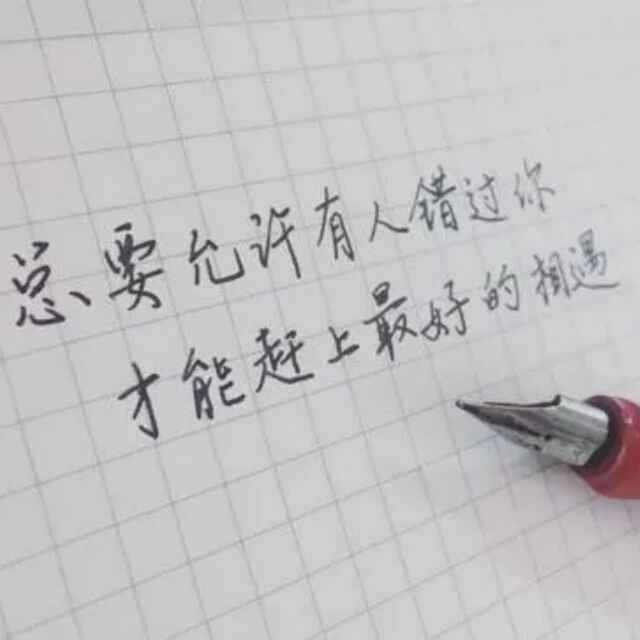 总要允许有人错过你
才能赶上最好的相遇